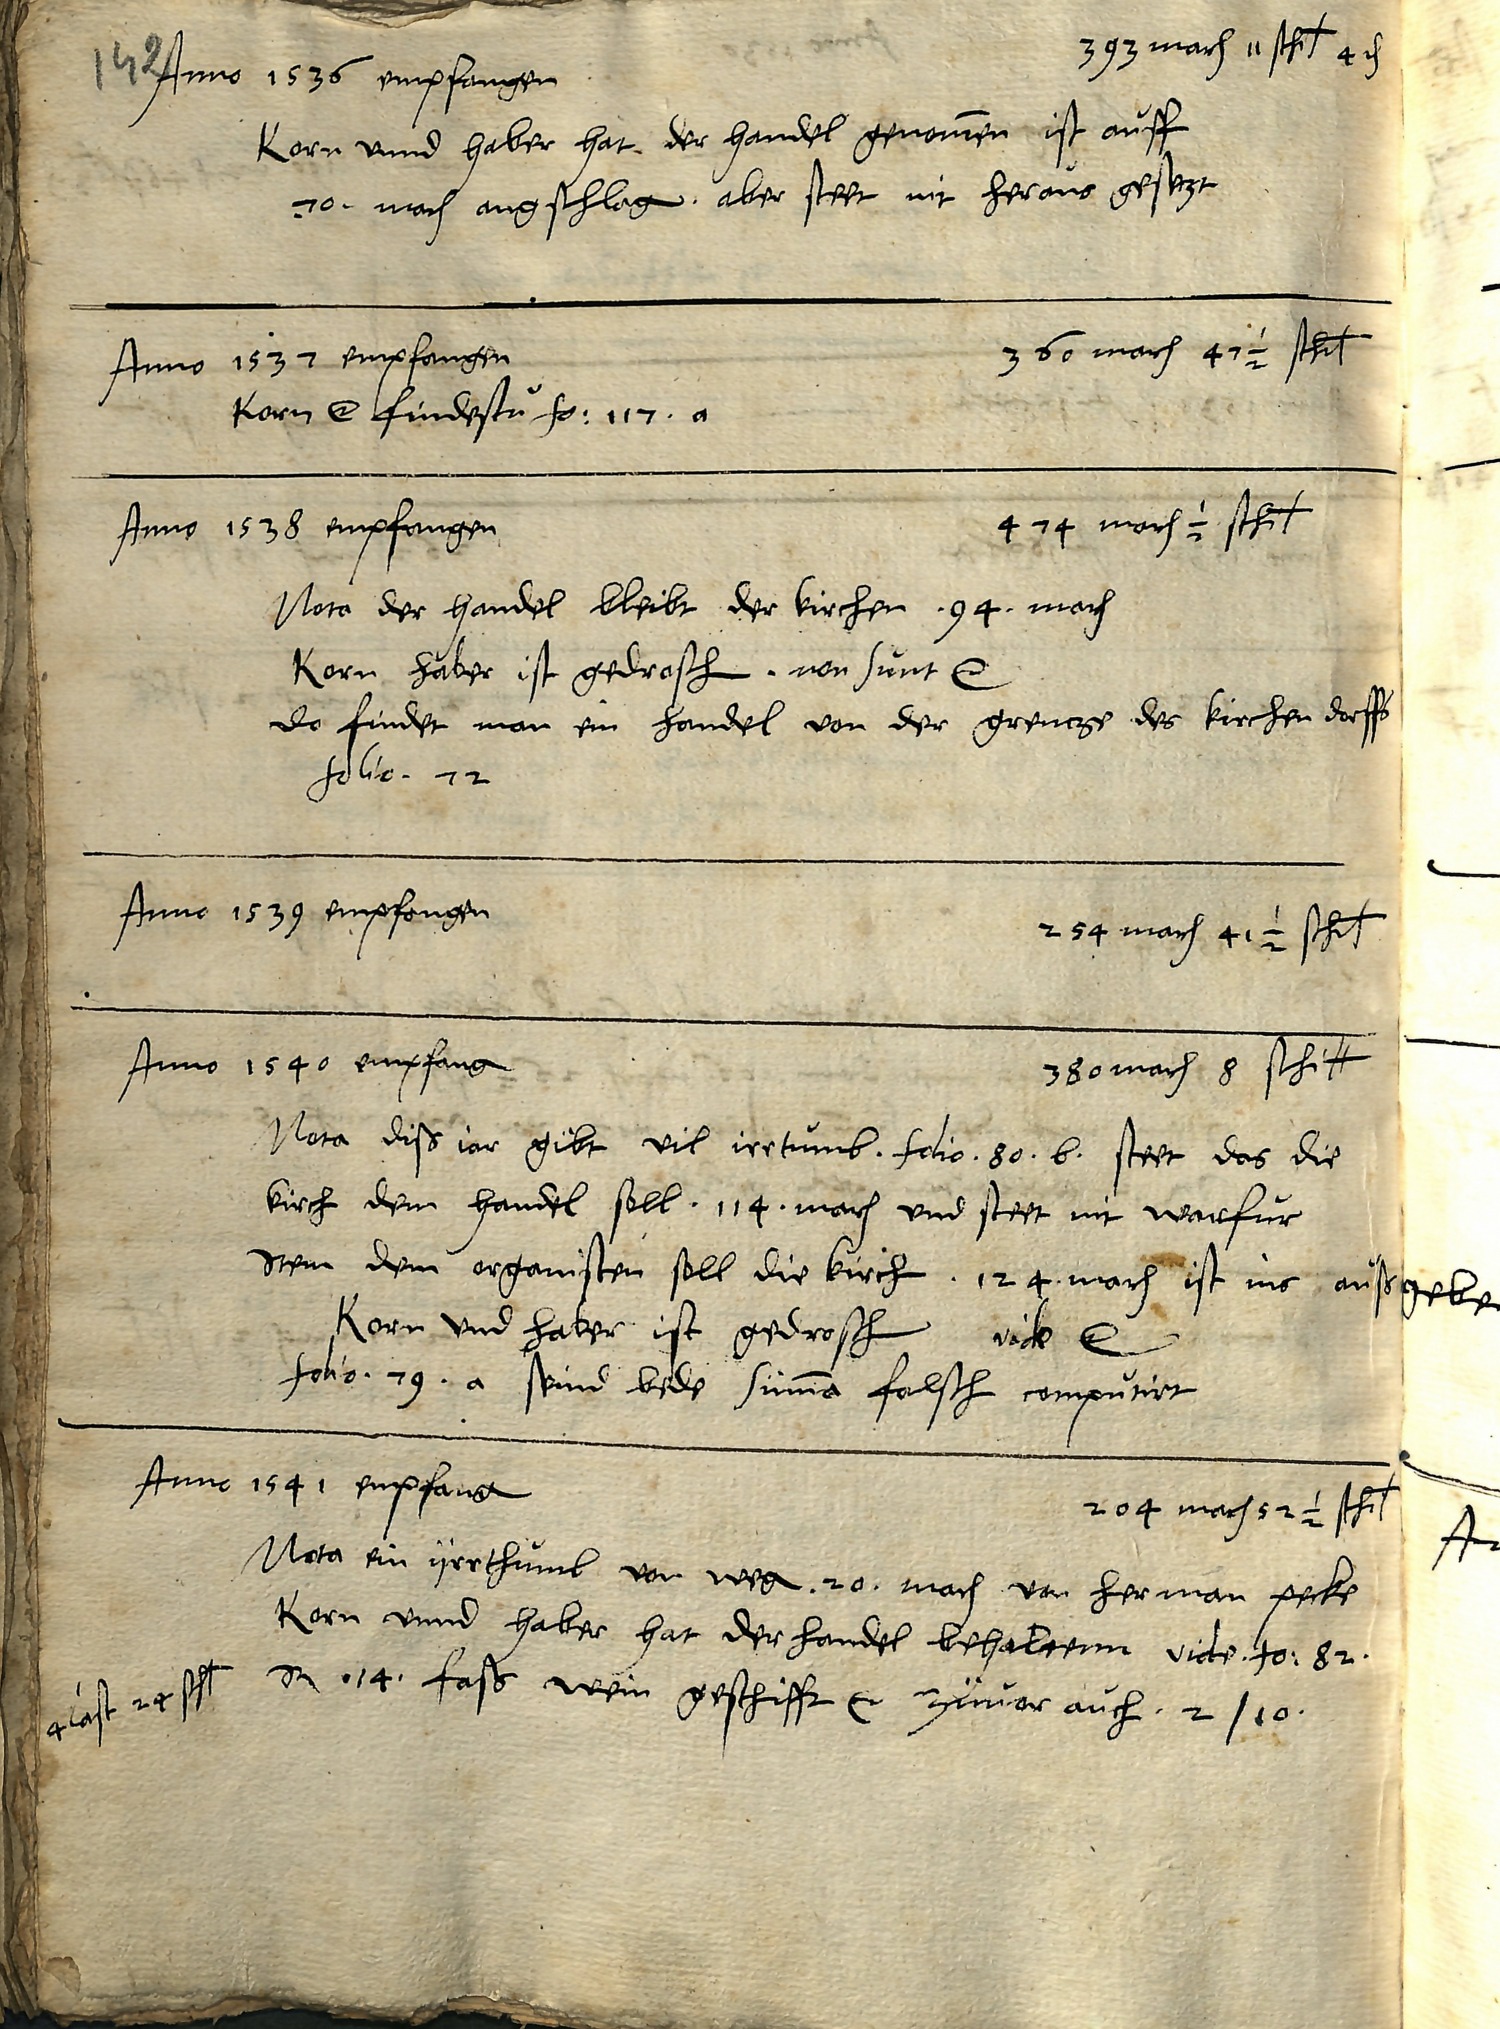 142
Anno 1536 empfangen 393 march 11 schil 4 ₰
Korn vnnd haber hat der handel genom̄en ist auff
70. march angschlag. aber steet nit heraus gesetzt
Anno 1537 empfangen 360 march 47 ½ schil
Korn etc findestu fo: 117. a
Anno 1538 empfangen 474 march ½ schil
Nota der handel bleibt der kirchen .94. march
Korn haber ist gedrosch. non sunt etc
do findet man ein handel von der grencze des kirchen dorffs
folio. 72
Anno 1539 empfangen 254 march 41 ½ schil
Anno 1540 empfang 380 march 8 schill
Nota diss iar gibt vil irrtumb. folio. 80. b. steet das die
kirch dem handel soll. 114. march vnd steet nit warfur
Item dem organisten soll die kirch. 124. march ist ins aussgeben
Korn vnd haber ist gedrosch vide etc
folio. 79. a seind bede Sum̄a falsch computirt
Anno 1541 empfang 204 march 52 ½ schil
Nota ein ijrrthumb von weg .20. march von herman pecke
Korn vnnd haber hat der handel behaltenn vide. fo: 82.
.14. fass wein geschifft etc zuuor auch. 2/10.
4 last 24 schl